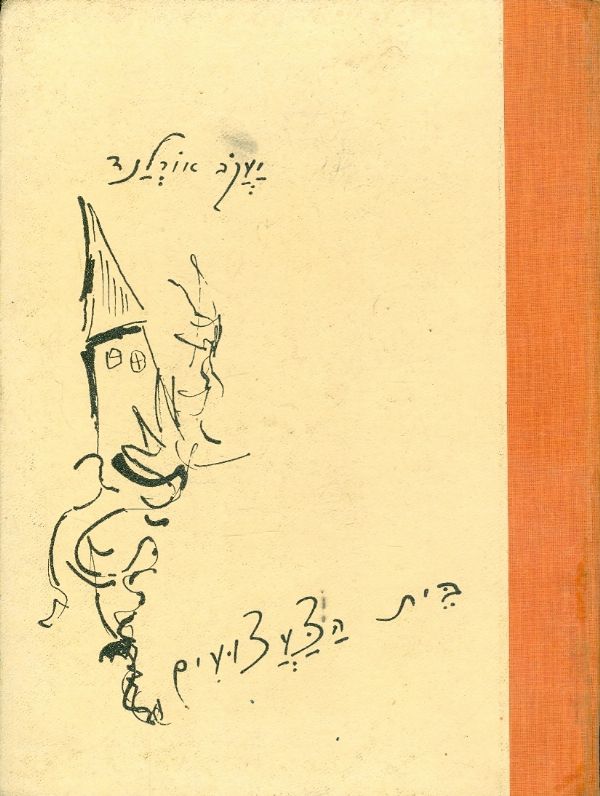 יַעֲקֹב אוֹרְלַנְד
בֵּית הַצַּעֲצוּעִים